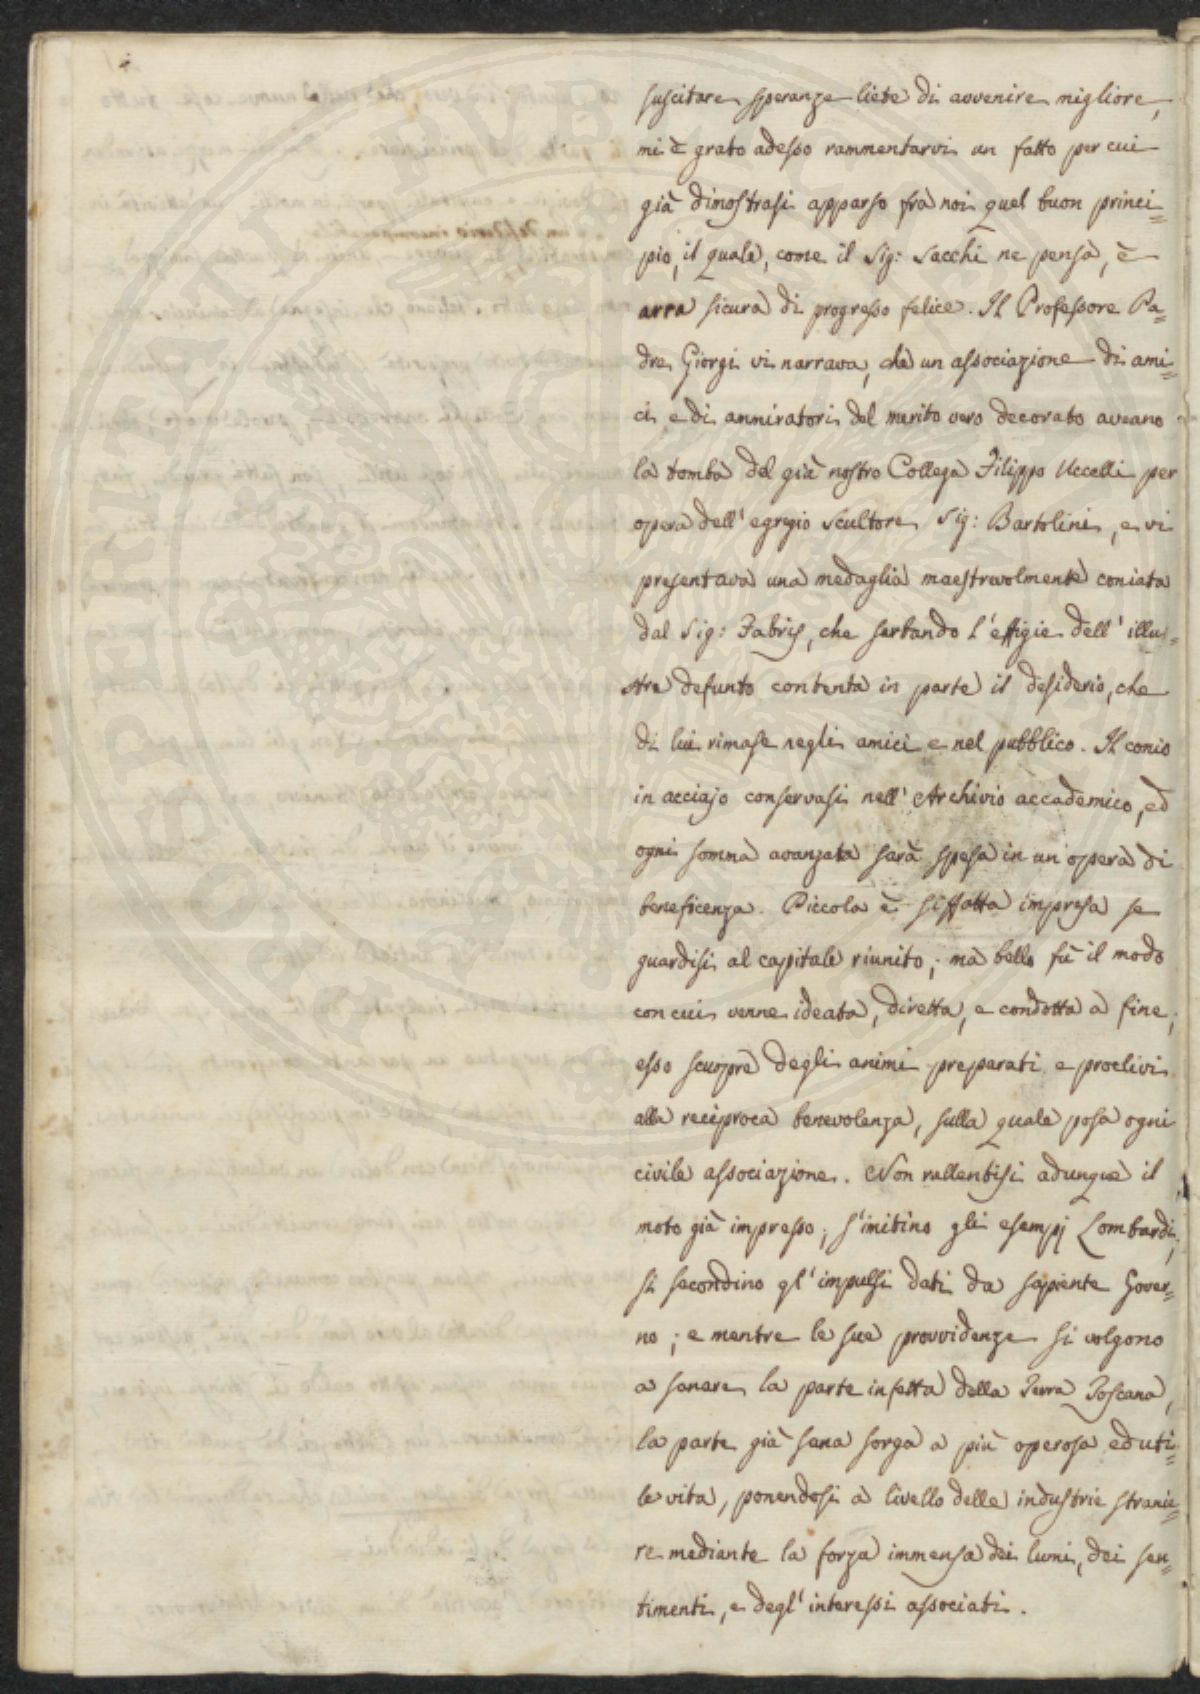 suscitare speranze liete di avvenire migliore,
mi è grato adesso rammentarvi un fatto per cui
già dimostrasi apparso frà noi quel buon princi=
pio, il quale, come il Sig: Sacchi ne pensa, è
arra sicura di progresso felice. Il Professore Pa=
dre Giorgi vi narrava, che un associazione di ami=
ci e di ammiratori del merito vero decorato aveano
la tomba del già nostro Collega Filippo Uccelli per
opera dell' egregio Scultore Sig: Bartolini, e vi
presentava una medaglia maestrevolmente coniata
dal Sig: Fabris, che serbando l'effigie dell' illu=
stre defunto contenta in parte il desiderio, che
di lui rimase negli amici e nel pubblico. Il conio
in acciajo conservasi nell' Archivio accademico, ed
ogni somma avanzata sarà spesa in un' opera di
beneficenza. Piccola è siffatta impresa se
guardisi al capitale riunito; mà bello fù il modo
con cui venne ideata, diretta, e condotta a fine;
esso scuopre degli animi preparati e proclivi
alla reciproca benevolenza, sulla quale posa ogni
civile associazione. Non rallentisi adunque il
moto già impresso; s'imitino gli esempj Lombardi;
si secondino gl' impulsi dati da sapiente Gover=
no; e mentre le sue provvidenze si volgono
a sanare la parte infetta della Terra Toscana,
la parte già sana sorga a più operosa ed uti=
le vita, ponendosi a livello delle industrie stranie=
re mediante la forza immensa dei lumi, dei sen=
timenti, e degl' interessi associati.